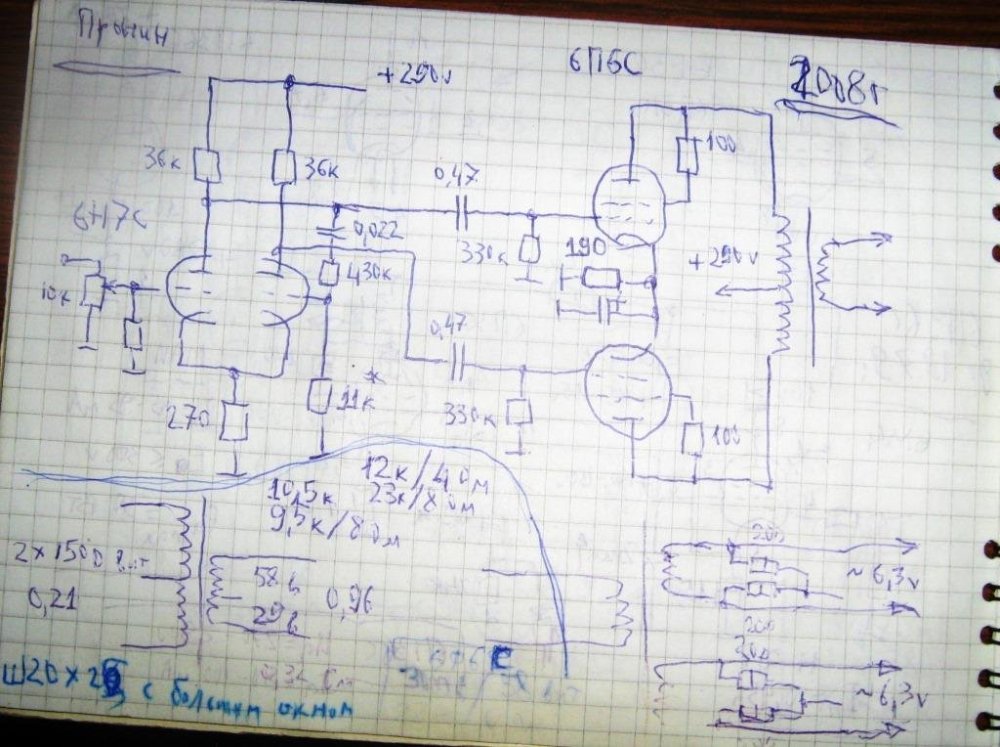 6П6С
2008г
+290v
36к
36к
100
6Н7С
0,47
0,022
330к
190
430к
+290v
10к
0,47
11к *
330к
270
100
12к/4 Ом
10,5к
23к/8 Ом
9,5к/8 Ом
200
2×1500 вит
58в
~6,3v
0,21
29в
0,96
200
200
Ш20×25 с большим окном
~6,3v